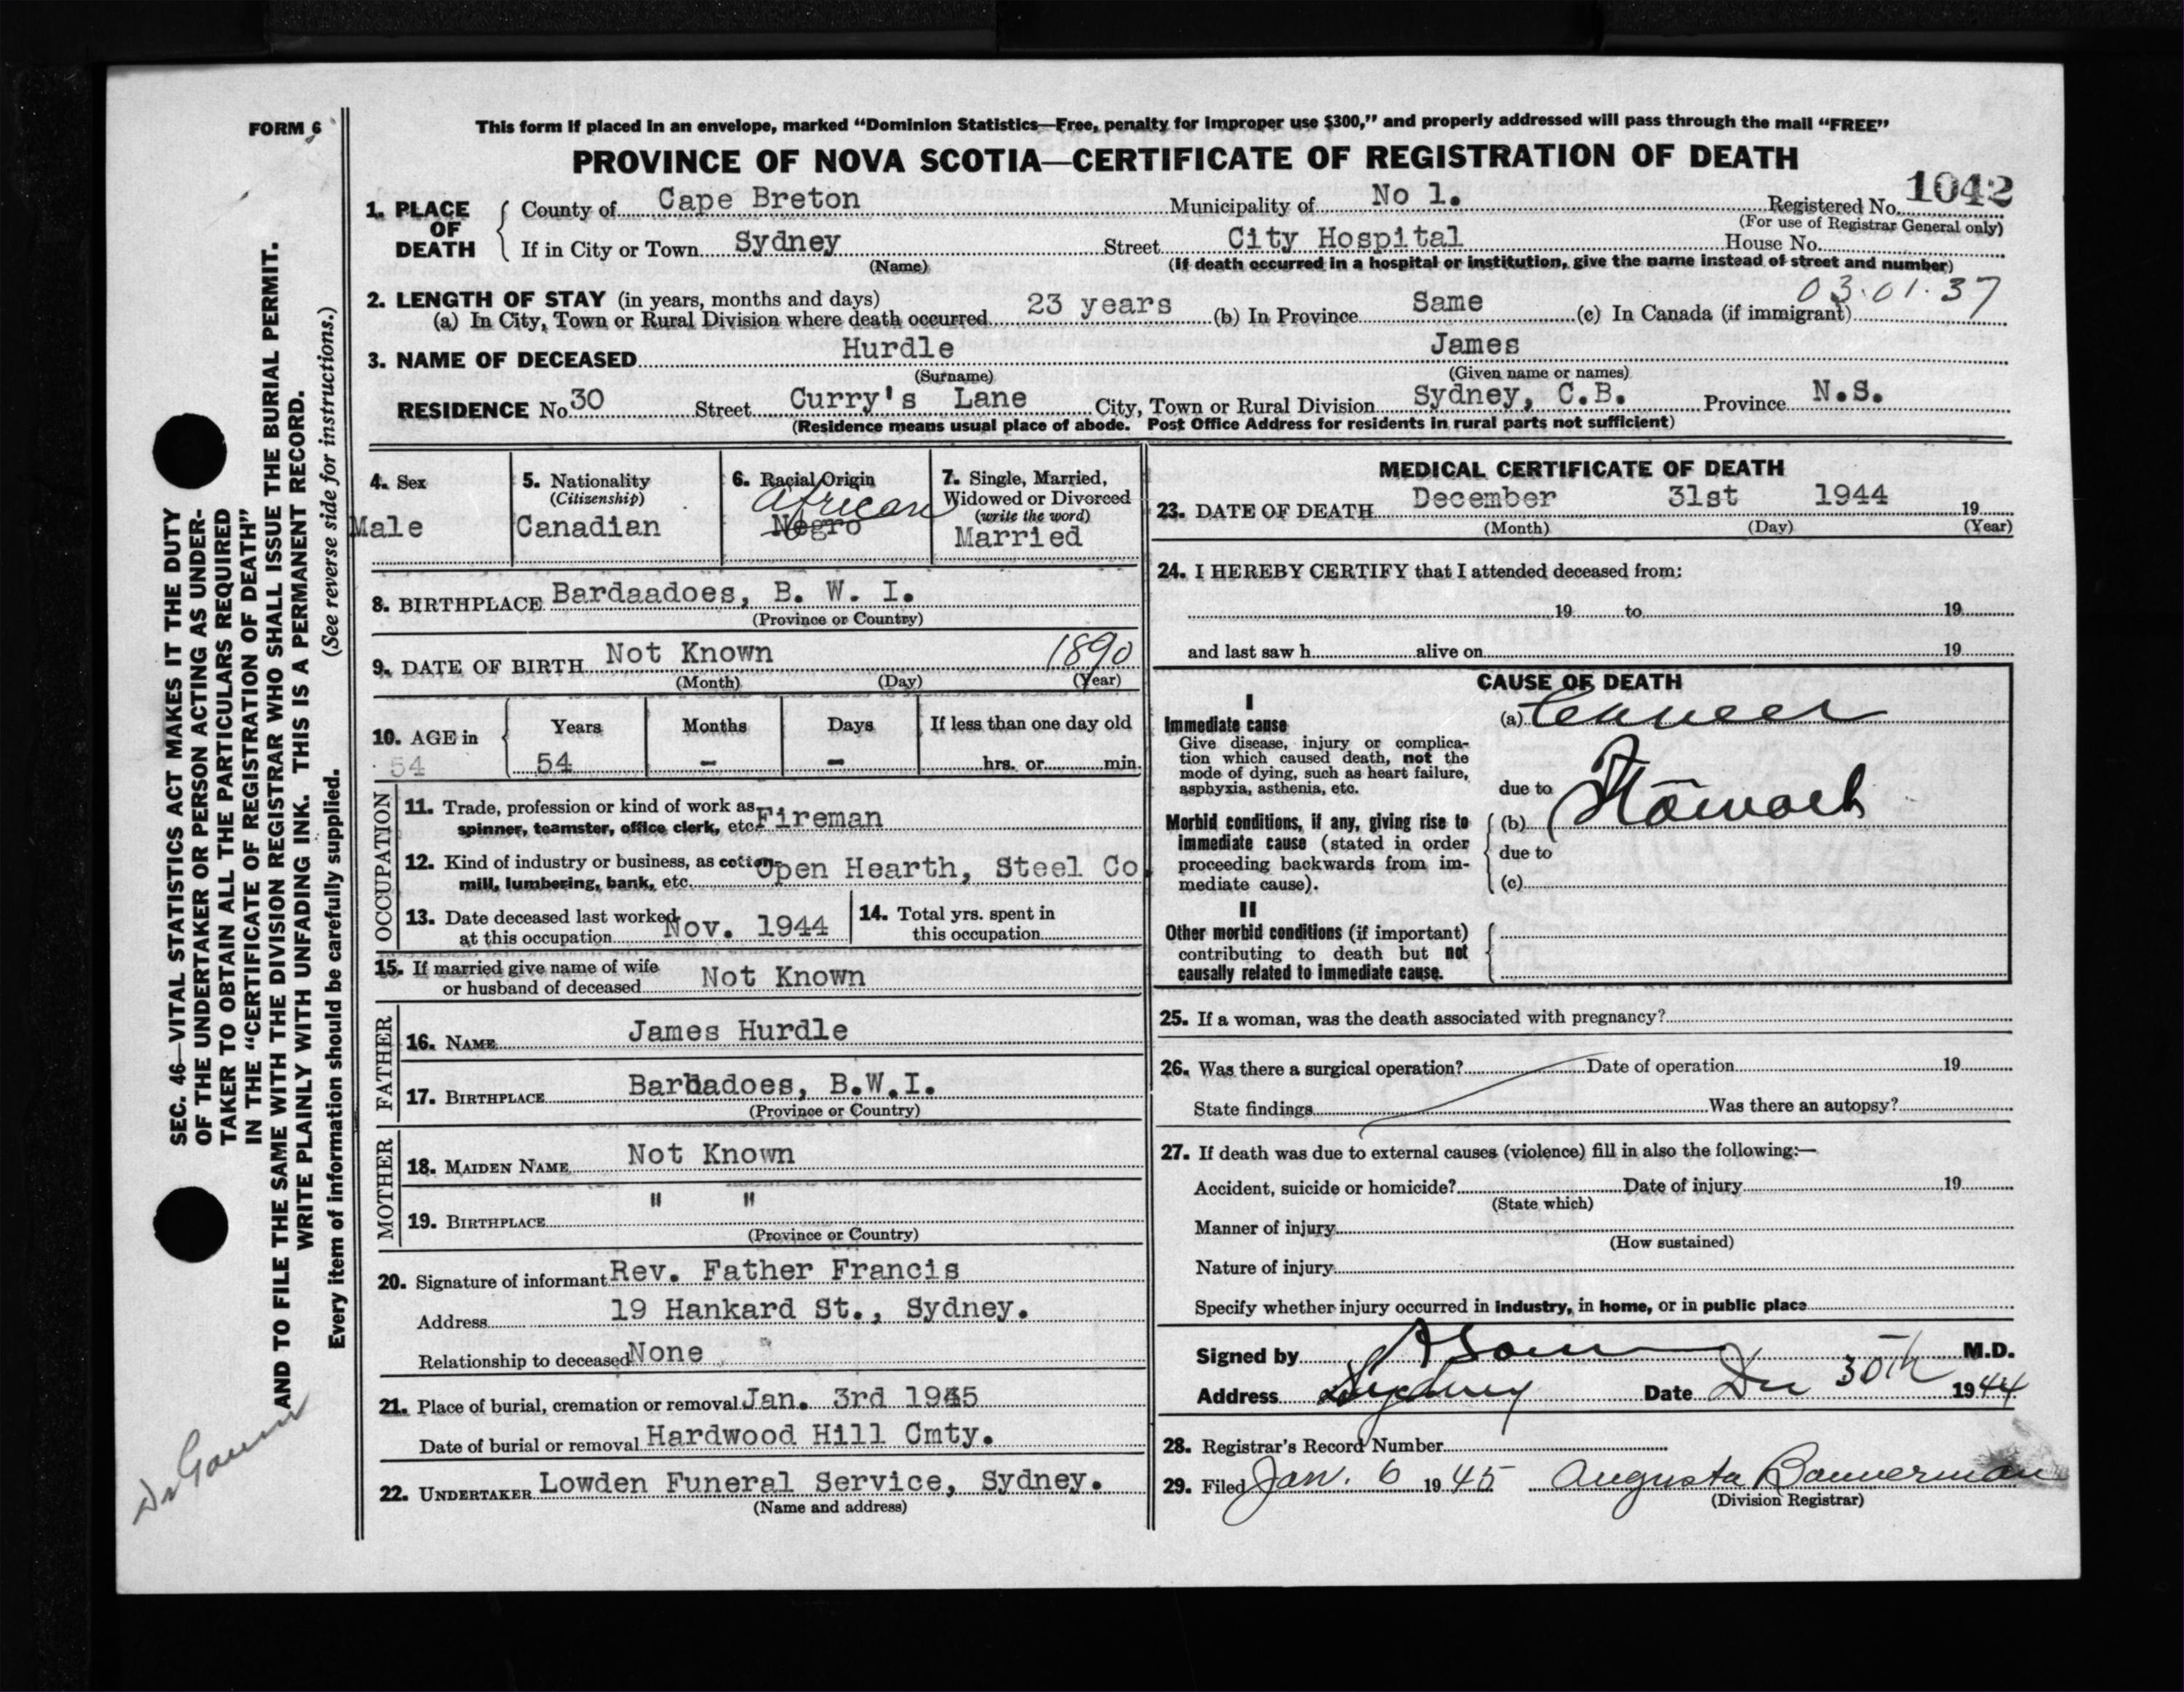 FORM 6
This form if placed in an envelope, marked “Dominion Statistics—Free, penalty for improper use $300,” and properly addressed will pass through the mail “FREE”
PROVINCE OF NOVA SCOTIA—CERTIFICATE OF REGISTRATION OF DEATH
1. PLACE OF DEATH
County of Cape Breton Municipality of No 1. Registered No. 1042
(For use of Registrar General only)
If in City or Town Sydney Street City Hospital House No.
(Name) (If death occurred in a hospital or institution, give the name instead of street and number)
03.01.37
2. LENGTH OF STAY (in years, months and days)
(a) In City, Town or Rural Division where death occurred 23 years (b) In Province Same (c) In Canada (if immigrant)
3. NAME OF DECEASED Hurdle James
(Surname) (Given name or names)
RESIDENCE No 30 Street Curry's Lane City, Town or Rural Division Sydney, C.B. Province N.S.
(Residence means usual place of abode. Post Office Address for residents in rural parts not sufficient)
4. Sex
Male
5. Nationality
(Citizenship)
Canadian
6. Racial Origin
African
Negro
7. Single, Married,
Widowed or Divorced
(write the word)
Married
8. BIRTHPLACE Bardaadoes, B. W. I.
(Province or Country)
9. DATE OF BIRTH Not Known 1890
(Month) (Day) (Year)
10. AGE in Years Months Days If less than one day old
54 54 - - hrs. or min.
OCCUPATION
11. Trade, profession or kind of work as
spinner, teamster, office clerk, etc. Fireman
12. Kind of industry or business, as cotton
mill, lumbering, bank, etc. Open Hearth, Steel Co.
13. Date deceased last worked
at this occupation Nov. 1944
14. Total yrs. spent in
this occupation
15. If married give name of wife
or husband of deceased Not Known
FATHER
16. NAME James Hurdle
17. BIRTHPLACE Barbadoes, B.W.I.
(Province or Country)
MOTHER
18. MAIDEN NAME Not Known
19. BIRTHPLACE " "
(Province or Country)
20. Signature of informant Rev. Father Francis
Address 19 Hankard St., Sydney.
Relationship to deceased None
21. Place of burial, cremation or removal Jan. 3rd 1945
Date of burial or removal Hardwood Hill Cmty.
22. UNDERTAKER Lowden Funeral Service, Sydney.
(Name and address)
MEDICAL CERTIFICATE OF DEATH
23. DATE OF DEATH December 31st 1944 19
(Month) (Day) (Year)
24. I HEREBY CERTIFY that I attended deceased from:
19 to 19
and last saw h alive on 19
CAUSE OF DEATH
I
Immediate cause (a) Cancer
Give disease, injury or complica-
tion which caused death, not the
mode of dying, such as heart failure,
asphyxia, asthenia, etc. due to
Morbid conditions, if any, giving rise to (b) Stomach
immediate cause (stated in order due to
proceeding backwards from im-
mediate cause). (c)
II
Other morbid conditions (if important)
contributing to death but not
causally related to immediate cause.
25. If a woman, was the death associated with pregnancy?
26. Was there a surgical operation? Date of operation 19
State findings Was there an autopsy?
27. If death was due to external causes (violence) fill in also the following:—
Accident, suicide or homicide? Date of injury 19
(State which)
Manner of injury
(How sustained)
Nature of injury
Specify whether injury occurred in industry, in home, or in public place
Signed by M.D.
Address Sydney Date Dec 30th 1944
28. Registrar's Record Number
29. Filed Jan. 6 1945 Augusta Bannerman
(Division Registrar)
SEC. 46—VITAL STATISTICS ACT MAKES IT THE DUTY
OF THE UNDERTAKER OR PERSON ACTING AS UNDER-
TAKER TO OBTAIN ALL THE PARTICULARS REQUIRED
IN THE “CERTIFICATE OF REGISTRATION OF DEATH”
AND TO FILE THE SAME WITH THE DIVISION REGISTRAR WHO SHALL ISSUE THE BURIAL PERMIT.
WRITE PLAINLY WITH UNFADING INK. THIS IS A PERMANENT RECORD.
Every item of information should be carefully supplied. (See reverse side for instructions.)
Dr